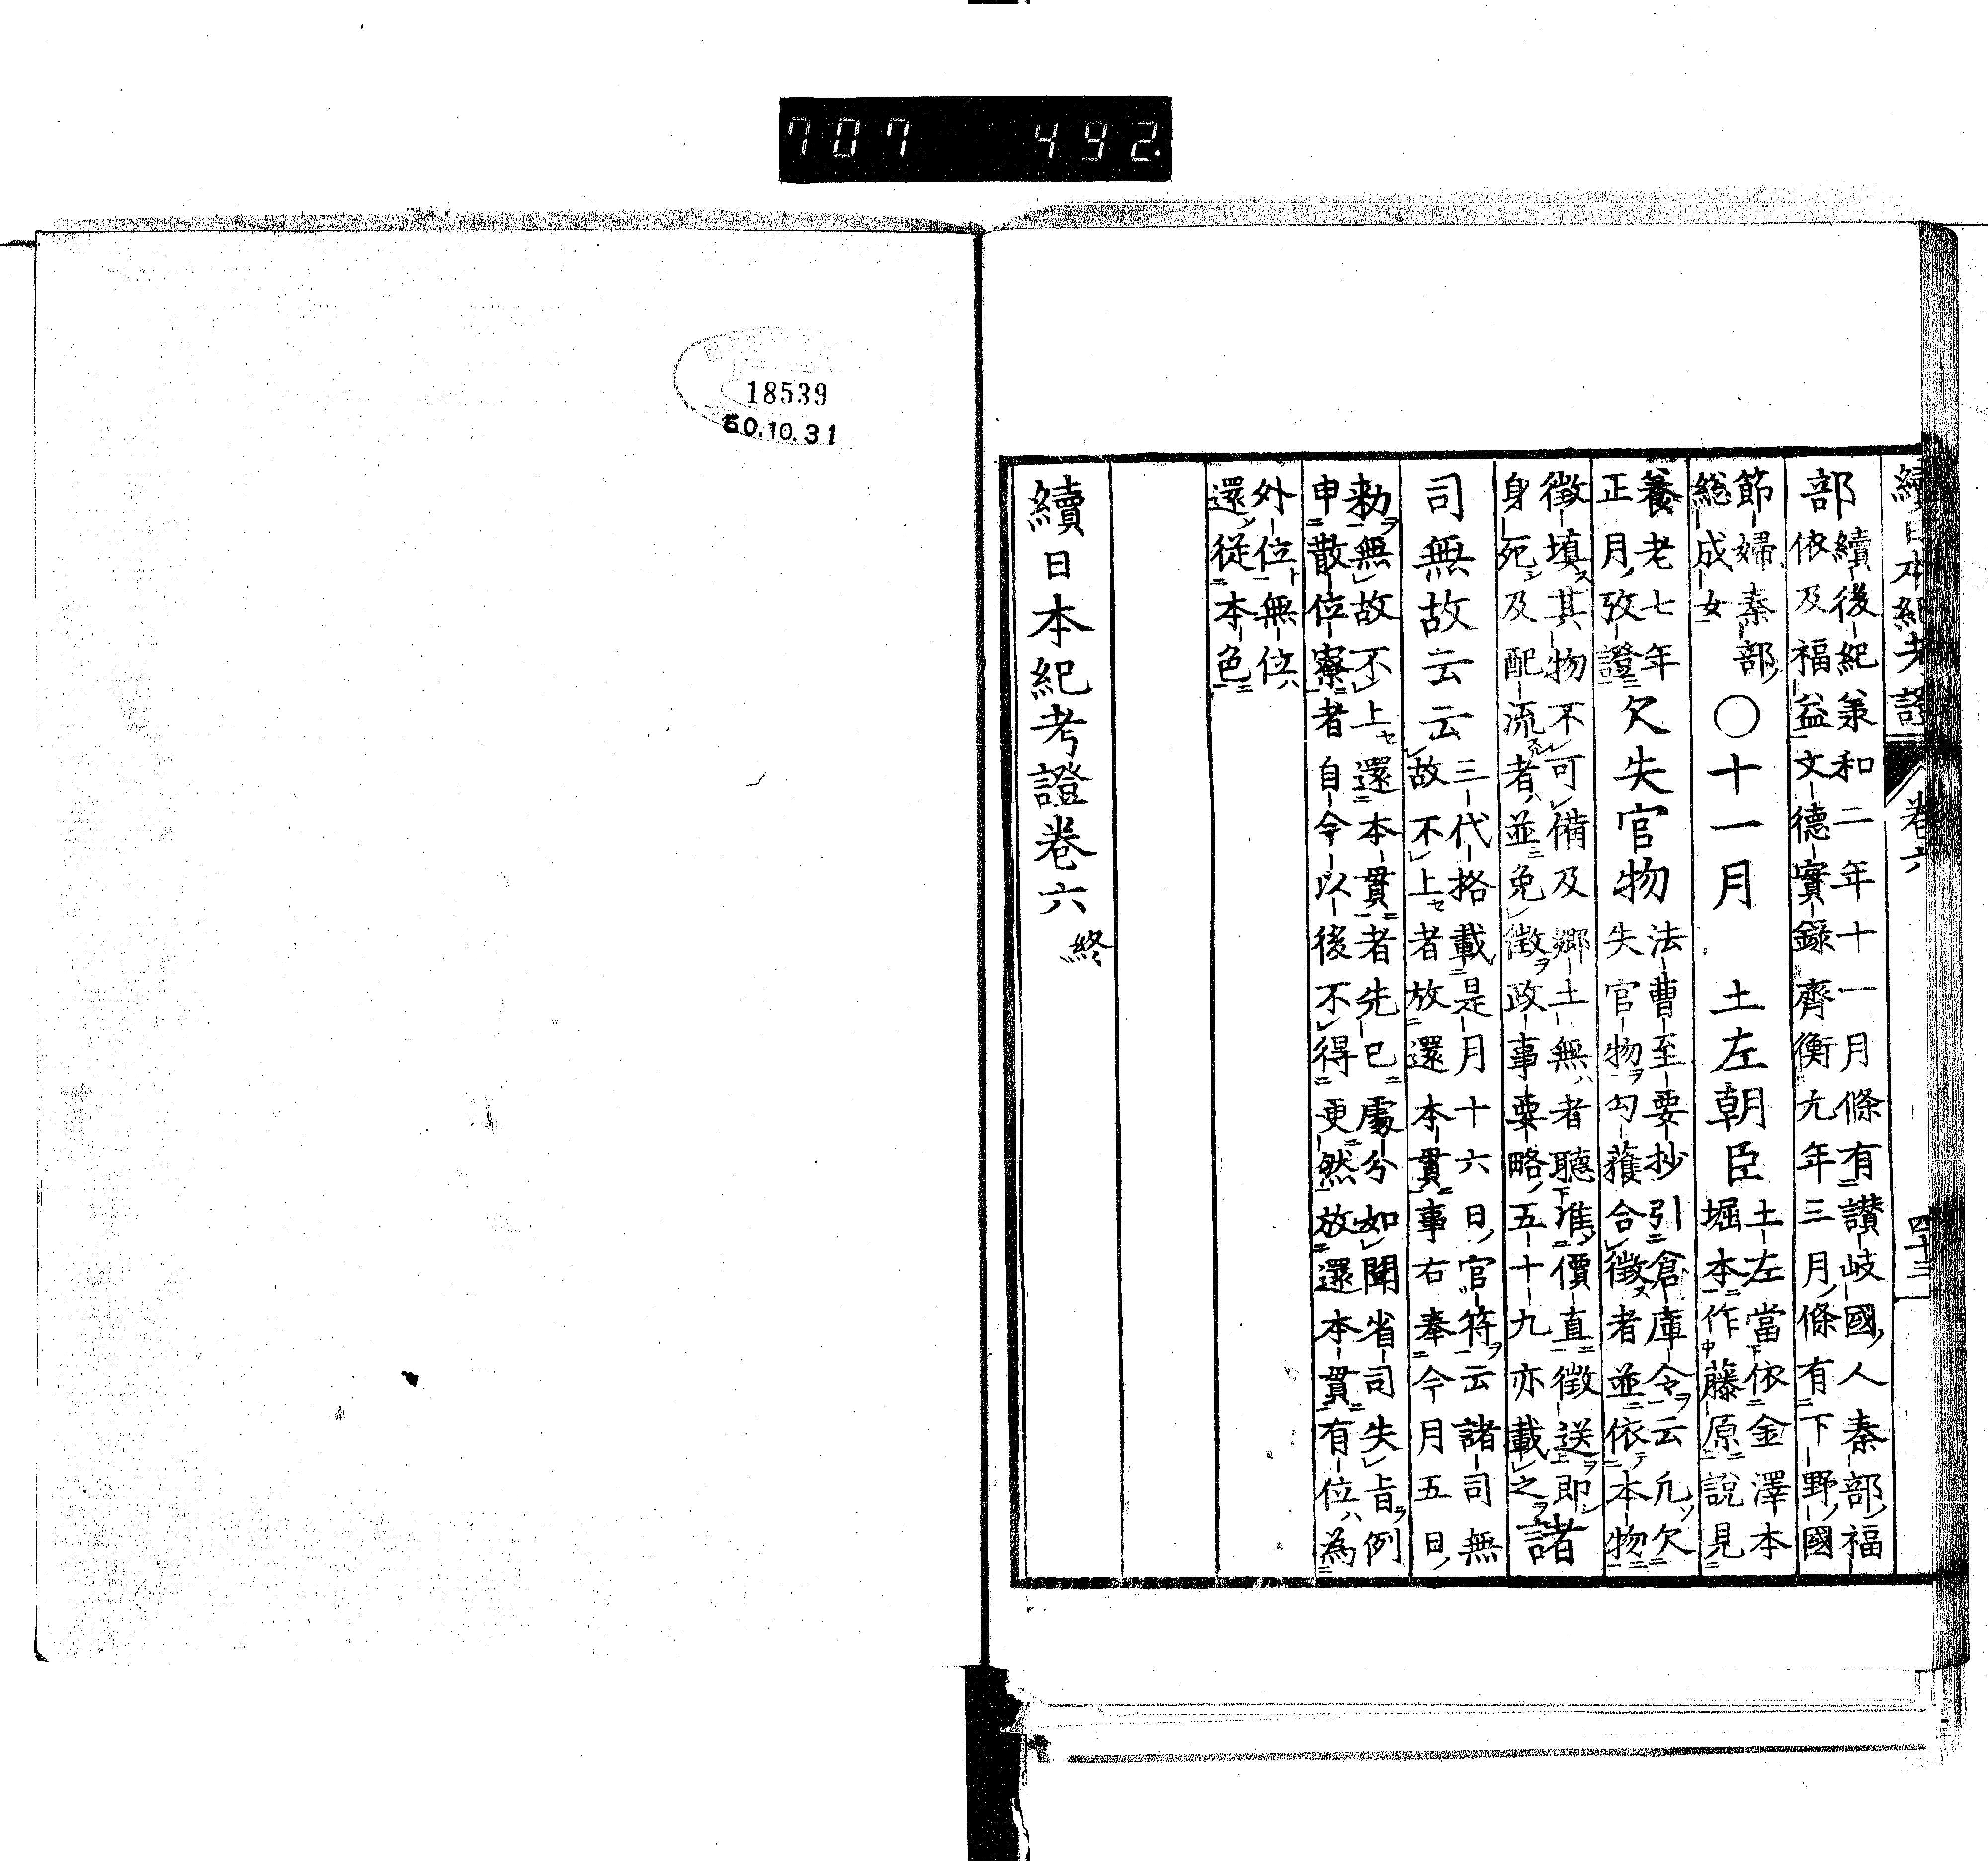 707 492.
續日本紀考證 卷六 四十三
部續後紀承和二年十一月條有讃岐國人秦部福
依及福益文德實錄齊衡元年三月條有下野國
節婦秦部
総成女
○十一月 土左朝臣土左當依金澤本
堀本作藤原說見
養老七年
正月攷證
欠失官物法曹至要抄引倉庫令云凡欠
失官物勾獲合徵者並依本物
徵填其物不可備及郷土無者聽准價直徵送即
身死及配流者並免徵政事要略五十九亦載之
諸
司無故云云三代格載是月十六日官符云諸司無
故不上者放還本貫事右奉今月五日
勅無故不上還本貫者先已處分如聞省司失旨例
申散位寮者自今以後不得更然放還本貫有位為
外位無位
還從本色
續日本紀考證卷六終
18539
50.10.31